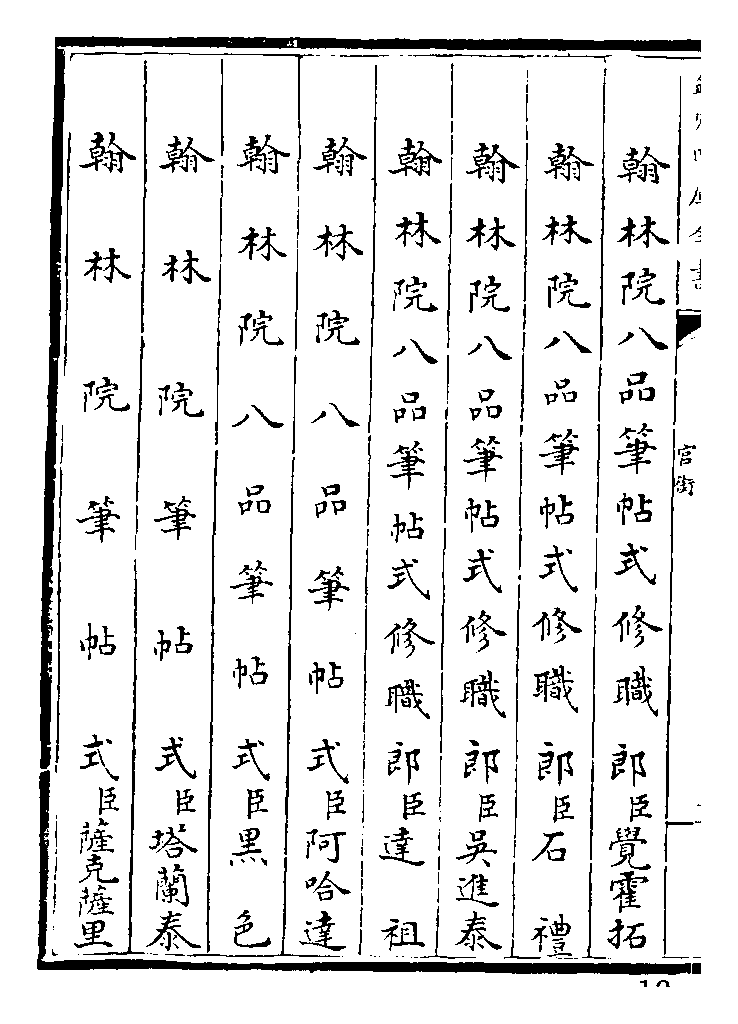 欽定四庫全書
官銜
翰林院八品筆帖式修職郎臣覺霍拓
翰林院八品筆帖式修職郎臣石禮
翰林院八品筆帖式修職郎臣吳進泰
翰林院八品筆帖式修職郎臣達祖
翰林院八品筆帖式臣阿哈達
翰林院八品筆帖式臣黑色
翰林院筆帖式臣塔蘭泰
翰林院筆帖式臣薩克薩里